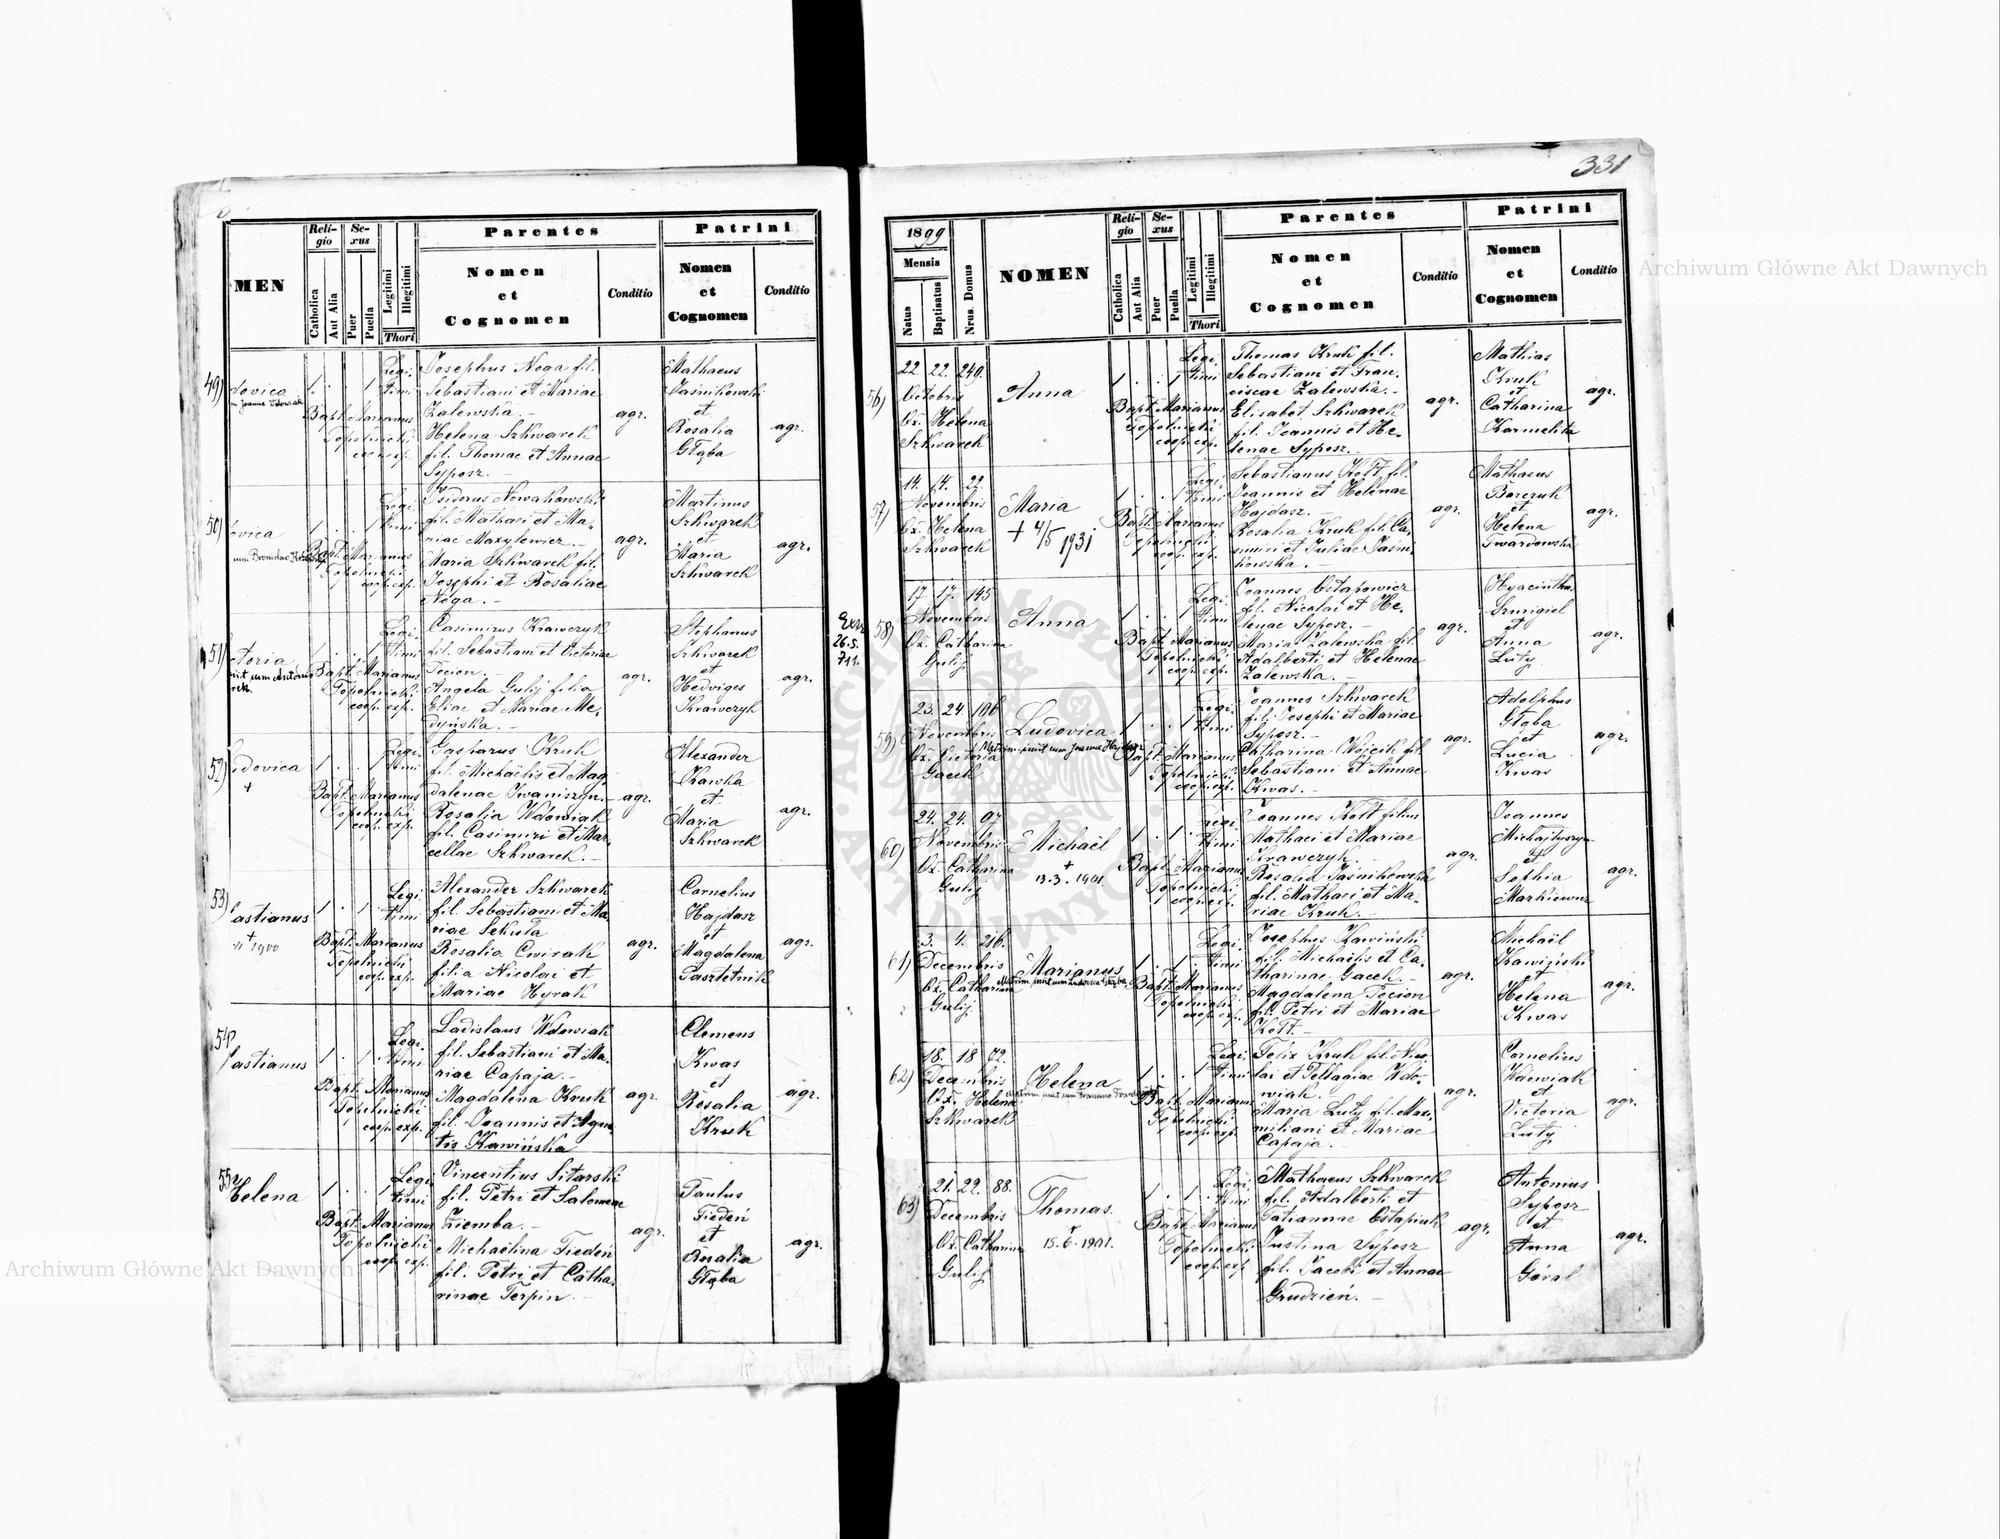 331
MEN
Reli-
gio
Se-
xus
Catholica
Aut Alia
Puer
Puella
Legitimi
Illegitimi
Thori
Parentes
Nomen
et
Cognomen
Conditio
Patrini
Nomen
et
Cognomen
Conditio
49)
dovica
1 . . 1
Legi-
timi
Bapt. Marianus
Topolnicki
coop. exp.
Josephus Noga fil.
Sebastiani et Mariae
Zalewska. -
Helena Szkwarek
fil. Thomae et Annae
Syposz. -
agr.
Mathaeus
Jasnikowski
et
Rosalia
Głąba
agr.
50)
ovica
1 . . 1
Legi-
timi
Bapt. Marianus
Topolnicki
coop. exp.
Isidorus Nowakowski
fil. Mathaei et Ma-
riae Maxylewicz. -
Maria Szkwarek fil.
Josephi et Rosaliae
Noga. -
agr.
Martinus
Szkwarek
et
Maria
Szkwarek
agr.
51)
ctoria
1 . . 1
Legi-
timi
Bapt. Marianus
Topolnicki
coop. exp.
Casimirus Krawczyk
fil. Sebastiani et Victoriae
Tecion. -
Angela Gulij filia
Eliae et Mariae Me-
dyńska. -
agr.
Stephanus
Szkwarek
et
Hedviges
Krawczyk
agr.
26.5.
52)
dovica
+
1 . . 1
Legi-
timi
Bapt. Marianus
Topolnicki
coop. exp.
Gasparus Kruk
fil. Michaëlis et Mag-
dalenae Iwaniszyn. -
Rosalia Wdowiak
fil. Casimiri et Mar-
cellae Szkwarek. -
agr.
Alexander
Kawka
et
Maria
Szkwarek
agr.
53)
bastianus
+
1900
1 . 1 .
Legi-
timi
Bapt. Marianus
Topolnicki
coop. exp.
Alexander Szkwarek
fil. Sebastiani et Ma-
riae Sekuła
Rosalia Cwirak
filia Nicolai et
Mariae Hyrak
agr.
Cornelius
Hajdasz
et
Magdalena
Pasztetnik
agr.
54)
bastianus
1 . 1 .
Legi-
timi
Bapt. Marianus
Topolnicki
coop. exp.
Ladislaus Wdowiak
fil. Sebastiani et Ma-
riae Capaja. -
Magdalena Kruk
fil. Joannis et Agne-
tis Kawińska
agr.
Clemens
Kwas
et
Rosalia
Kruk
agr.
55)
Helena
1 . . 1
Legi-
timi
Bapt. Marianus
Topolnicki
coop. exp.
Vincentius Sitarski
fil. Petri et Salomeae
Ziemba. -
Michaëlina Tiedeń
fil. Petri et Catha-
rinae Terpin. -
agr.
Paulus
Tiedeń
et
Rosalia
Głąba
agr.
1899
Mensis
Natus
Baptisatus
Nrus. Domus
NOMEN
Reli-
gio
Se-
xus
Catholica
Aut Alia
Puer
Puella
Legitimi
Illegitimi
Thori
Parentes
Nomen
et
Cognomen
Conditio
Patrini
Nomen
et
Cognomen
Conditio
56)
22. 22. 249.
Octobris
Ob. Helena
Szkwarek
Anna
1 . . 1
Legi-
timi
Bapt. Marianus
Topolnicki
coop. exp.
Thomas Kruk fil.
Sebastiani et Fran-
ciscae Zalewska. -
Elisabet Szkwarek
fil. Joannis et He-
lenae Syposz. -
agr.
Mathias
Kruk
et
Catharina
Karmelita
agr.
57)
14. 14. 22.
Novembris
Ob. Helena
Szkwarek
Maria
+ 4/5 1931
1 . . 1
Legi-
timi
Bapt. Marianus
Topolnicki
coop. exp.
Sebastianus Kott fil.
Joannis et Helenae
Hajdasz. -
Rosalia Kruk fil. Ca-
simiri et Juliae Jaśni-
kowska. -
agr.
Mathaeus
Barczuk
et
Helena
Twardowska
agr.
58)
17. 17. 145
Novembris
Ob. Catharina
Gulij
Anna
1 . . 1
Legi-
timi
Bapt. Marianus
Topolnicki
coop. exp.
Joannes Ostapowicz
fil. Nicolai et He-
lenae Syposz. -
Maria Zalewska fil.
Adalberti et Helenae
Zalewska. -
agr.
Hyacinthus
Szmigiel
et
Anna
Luty
agr.
59)
23. 24. 196
Novembris
Ob. Victoria
Gacek
Ludovica
Matrim. iniit cum Joanne Hajdasz
1 . . 1
Legi-
timi
Bapt. Marianus
Topolnicki
coop. exp.
Joannes Szkwarek
fil. Josephi et Mariae
Syposz. -
Catharina Wojcik fil.
Sebastiani et Annae
Kwas. -
agr.
Adolphus
Głąba
et
Lucia
Kwas
agr.
60)
24. 24. 97
Novembris
Ob. Catharina
Gulij
Michaël
+
13.3.1901.
1 . 1 .
Legi-
timi
Bapt. Marianus
Topolnicki
coop. exp.
Joannes Kott filius
Mathaei et Mariae
Krawczyk. -
Rosalia Jasnikowska
fil. Mathaei et Ma-
riae Kruk. -
agr.
Joannes
Michajłyszyn
et
Sophia
Markiewicz
agr.
61)
3. 4. 216.
Decembris
Ob. Catharina
Gulij.
Marianus
Matrim. iniit cum Ludovica Głąba
1 . 1 .
Legi-
timi
Bapt. Marianus
Topolnicki
coop. exp.
Josephus Kawiński
fil. Michaëlis et Ca-
tharinae Gacek. -
Magdalena Tecion
fil. Petri et Mariae
Kott. -
agr.
Michaël
Kawiński
et
Helena
Kwas
agr.
62)
18. 18. 72.
Decembris
Ob. Helena
Szkwarek
Helena
1 . . 1
Legi-
timi
Bapt. Marianus
Topolnicki
coop. exp.
Felix Kruk fil. Nico-
lai et Pellagiae Wdo-
wiak. -
Maria Luty fil. Maxi-
miliani et Mariae
Capaja. -
agr.
Cornelius
Wdowiak
et
Victoria
Luty
agr.
63)
21. 22. 88.
Decembris
Ob. Catharina
Gulij
Thomas.
+
15.6.1901.
1 . 1 .
Legi-
timi
Bapt. Marianus
Topolnicki
coop. exp.
Mathaeus Szkwarek
fil. Adalberti et
Tatiannae Ostapiuk
Justina Syposz
fil. Jacobi et Annae
Grudzień. -
agr.
Antonius
Syposz
et
Anna
Góral
agr.
Archiwum Główne Akt Dawnych
Archiwum Główne Akt Dawnych